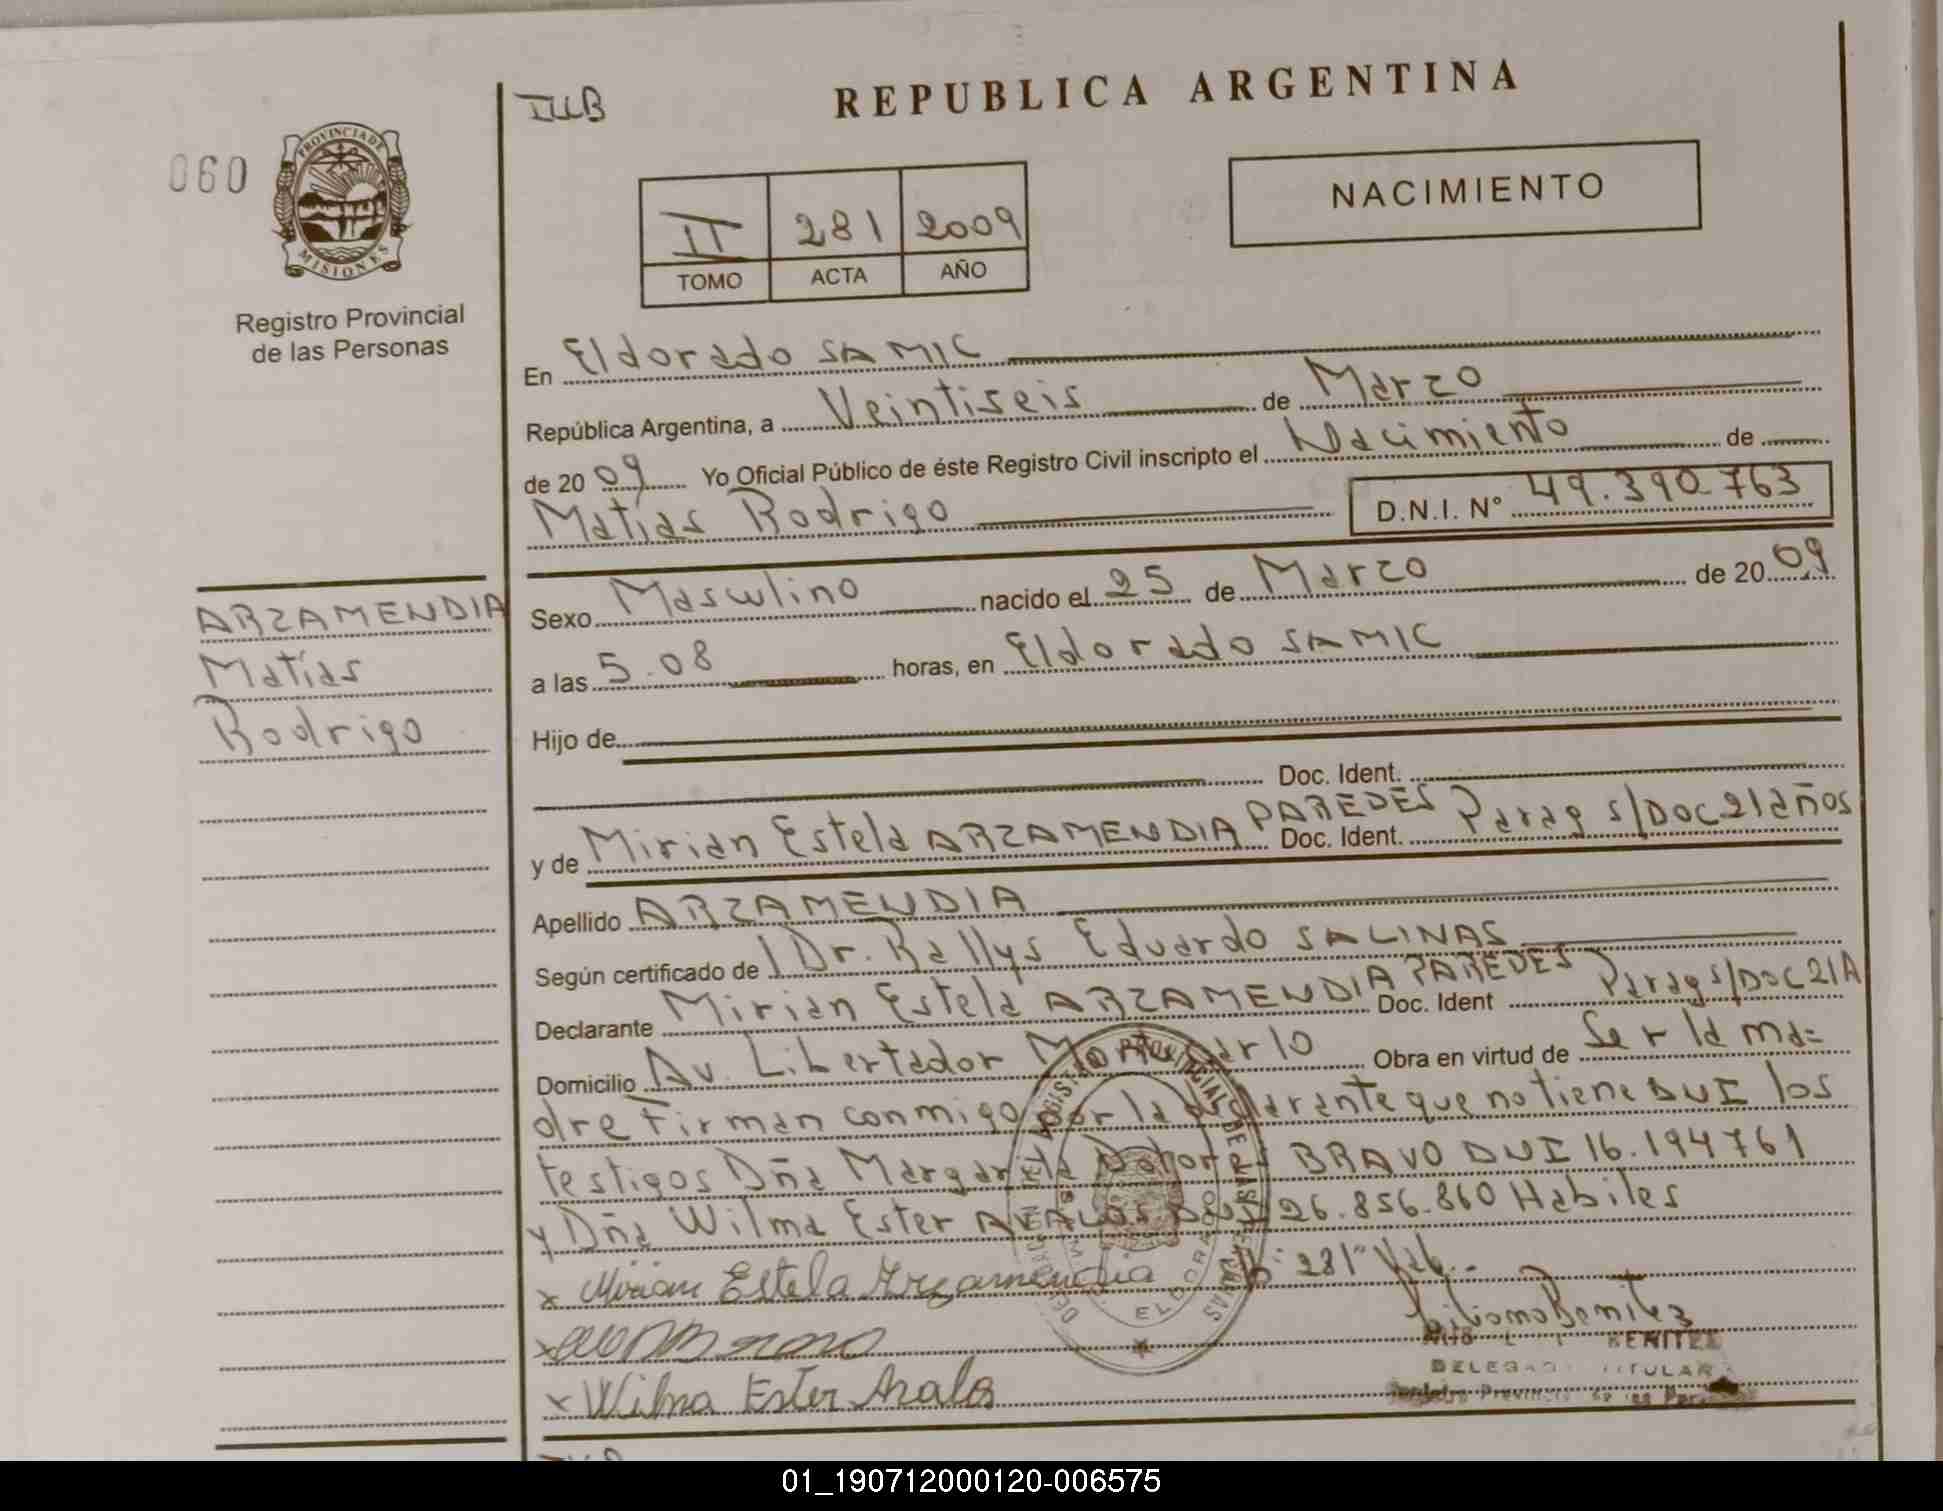 060
PROVINCIA DE
MISIONES
Registro Provincial
de las Personas
ARZAMENDIA
Matías
Rodrigo
REPUBLICA ARGENTINA
II 281 2009
TOMO ACTA AÑO
NACIMIENTO
En Eldorado SAMIC
República Argentina, a Veintiseis de Marzo
de 2009 Yo Oficial Público de éste Registro Civil inscripto el Nacimiento de
Matías Rodrigo D.N.I. N° 49.390.763
Sexo Masculino nacido el 25 de Marzo de 2009
a las 5.08 horas, en Eldorado SAMIC
Hijo de
Doc. Ident.
y de Mirian Estela ARZAMENDIA PAREDES Doc. Ident. Parag s/Doc 21 años
Apellido ARZAMENDIA
Según certificado de Dr. Rallys Eduardo SALINAS
Declarante Mirian Estela ARZAMENDIA PAREDES Doc. Ident Parag s/Doc 21 A
Domicilio Av. Libertador Montecarlo Obra en virtud de Ser la ma=
dre Firman conmigo por la declarante que no tiene DNI los
testigos Dña Margarita Dolores BRAVO DNI 16.194761
y Dña Wilma Ester AVALOS DNI 26.856.860 Habiles
x Mirian Estela Arzamendia
N: 281" Val.
x
x Wilma Ester Avalos
BENITEZ
TITULAR
ELDORADO
01_190712000120-006575